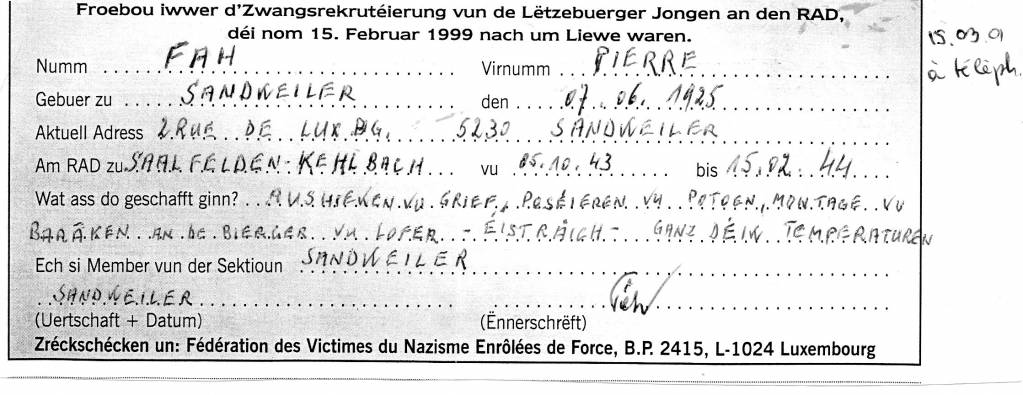 Froebou iwwer d'Zwangsrekrutéierung vun de Lëtzebuerger Jongen an den RAD,
déi nom 15. Februar 1999 nach um Liewe waren.
15.03.01
à téléph.
Numm FAH Virnumm PIERRE
Gebuer zu SANDWEILER den 07.06.1925
Aktuell Adress 2.RUE DE LUXBG. 5230 SANDWEILER
Am RAD zu SAALFELDEN-KEHLBACH vu 05.10.43 bis 15.02.44
Wat ass do geschafft ginn? AUSHIEWEN VU GRIEF, POSÉIEREN VU POTOEN, MONTAGE VU
BARÄKEN AN DE BIERGER VU LOFER - EISTRÄICH - GANZ DÉIW TEMPERATUREN
Ech si Member vun der Sektioun SANDWEILER
SANDWEILER
(Uertschaft + Datum) (Ënnerschrëft)
Zréckschécken un: Fédération des Victimes du Nazisme Enrôlées de Force, B.P. 2415, L-1024 Luxembourg